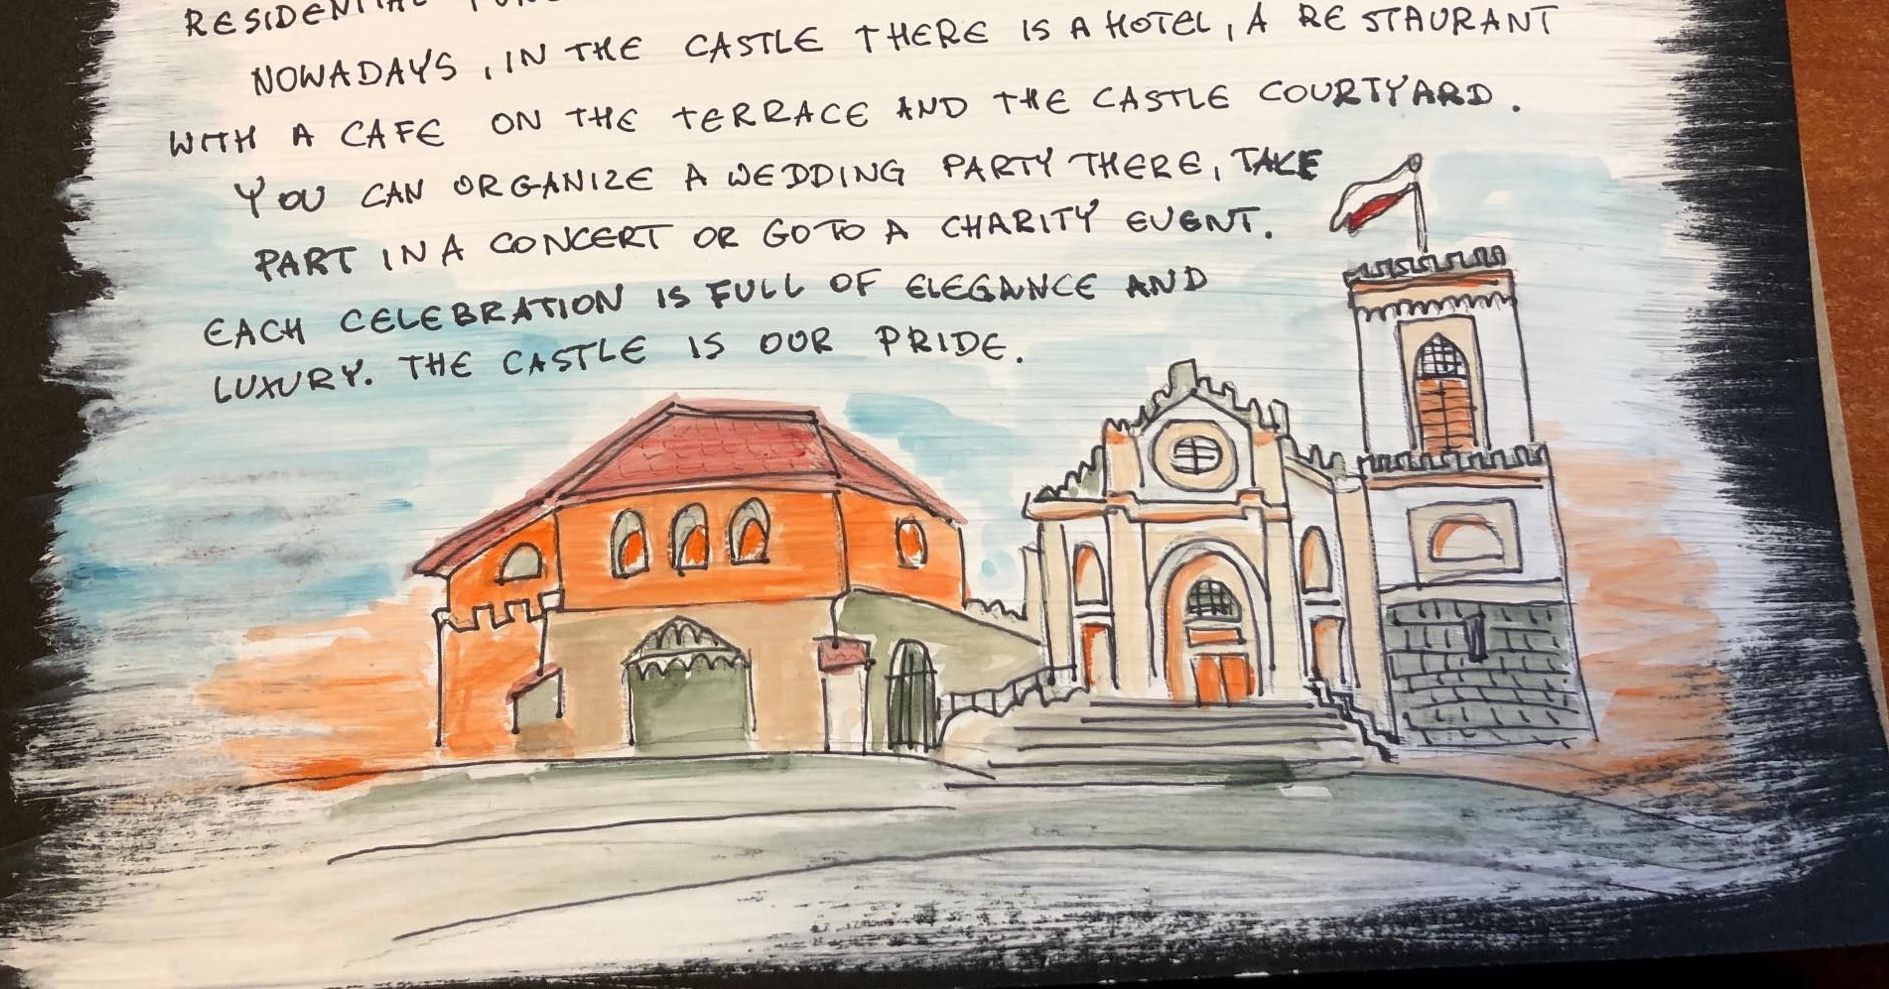 RESIDENTIAL
NOWADAYS, IN THE CASTLE THERE IS A HOTEL, A RESTAURANT
WITH A CAFE ON THE TERRACE AND THE CASTLE COURTYARD.
YOU CAN ORGANIZE A WEDDING PARTY THERE, TAKE
PART IN A CONCERT OR GO TO A CHARITY EVENT.
EACH CELEBRATION IS FULL OF ELEGANCE AND
LUXURY. THE CASTLE IS OUR PRIDE.